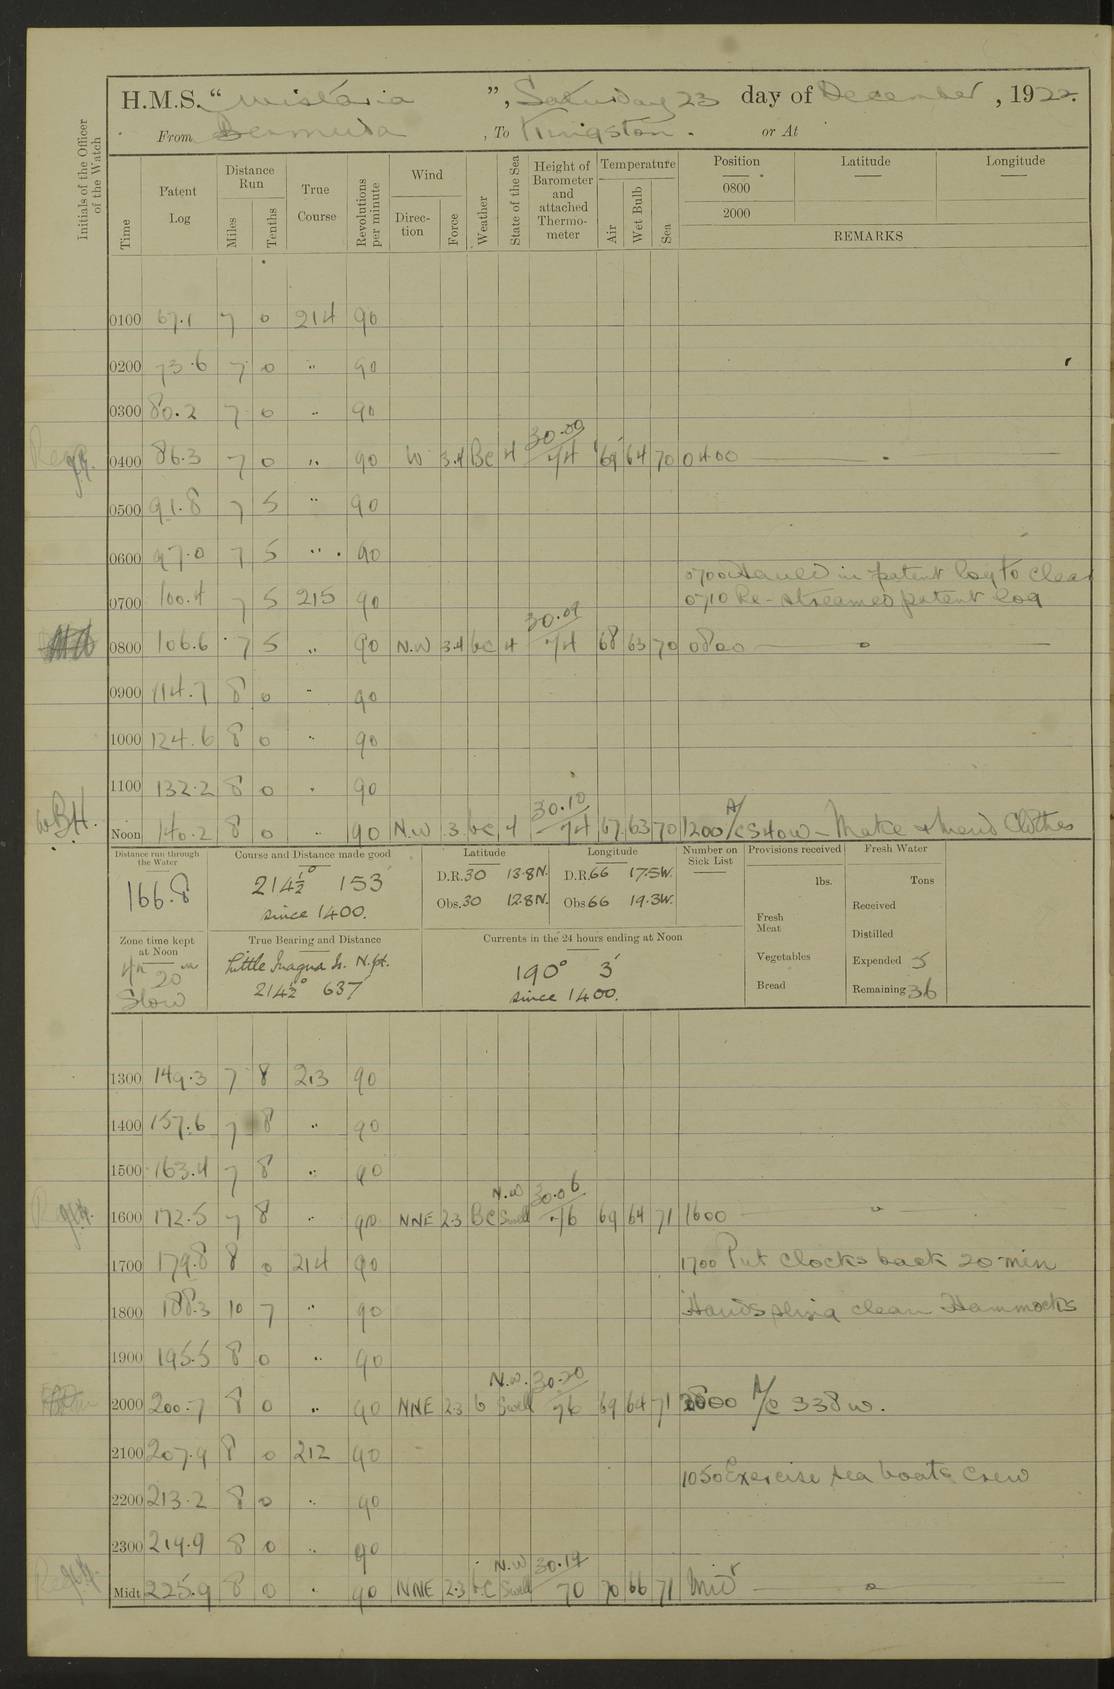 H.M.S. "Wistaria", Saturday 23 day of December, 1922.
From Bermuda, To Kingston. or At
Initials of the Officer of the Watch
Time
Patent Log
Distance Run
Miles
Tenths
True Course
Revolutions per minute
Wind
Direction
Force
Weather
State of the Sea
Height of Barometer and attached Thermometer
Temperature
Air
Wet Bulb
Sea
Position Latitude Longitude
0800
2000
REMARKS
0100 67.1 7 0 214 90
0200 73.6 7 0 " 90
0300 80.2 7 0 " 90
0400 86.3 7 0 " 90 W 3.4 Bc 4 30.00 74 69 64 70 0400
0500 91.8 7 5 " 90
0600 97.0 7 5 " 90
0700 Hauled in patent log to clear
0700 100.4 7 5 215 90 0710 Re-streamed patent log
0800 106.6 7 5 " 90 N.W 3.4 bc 4 30.09 74 68 63 70 0800
0900 114.7 8 0 " 90
1000 124.6 8 0 " 90
1100 132.2 8 0 " 90
W.B.H. Noon 140.2 8 0 " 90 N.W 3 bc 4 30.10 74 67 63 70 1200 A/c S40W - Make & mend Clothes
Distance run through the Water
166.8
Course and Distance made good
214½° 153'
since 1400.
Latitude
D.R. 30 13.8N.
Obs. 30 12.8N.
Longitude
D.R. 66 17.5W.
Obs 66 19.3W.
Number on Sick List
Provisions received
lbs.
Fresh Meat
Vegetables
Bread
Fresh Water
Tons
Received
Distilled
Expended 5
Remaining 36
Zone time kept at Noon
4h 20m
Slow
True Bearing and Distance
Little Inagua Is. N.pt.
214½° 637'
Currents in the 24 hours ending at Noon
190° 3'
since 1400.
1300 149.3 7 8 213 90
1400 157.6 7 8 " 90
1500 163.4 7 8 " 90
1600 172.5 7 8 " 90 NNE 2.3 Bc N.W Swell 30.06 76 69 64 71 1600
1700 179.8 8 0 214 90 1700 Put clocks back 20 min
1800 188.3 10 7 " 90 Hands sling clean Hammocks
1900 195.5 8 0 " 90
2000 200.7 8 0 " 90 NNE 2.3 b N.W. Swell 30.20 76 69 64 71 2000 A/c S38W.
2100 207.9 8 0 212 90
1050 Exercise sea boats crew
2200 213.2 8 0 " 90
2300 219.9 8 0 " 90
Midt 225.9 8 0 " 90 NNE 2.3 bc N.W Swell 30.19 70 70 66 71 Midt